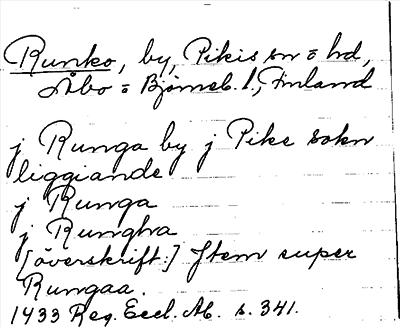 Runko, by, Pikis sn o hd,
Åbo o Björneb. l., Finland
j Runga by j Pike sokn
liggiande
j Runga
j Rungha
[överskrift:] Item super
Rungaa.
1433 Reg. Eccl. Ab. s. 341.